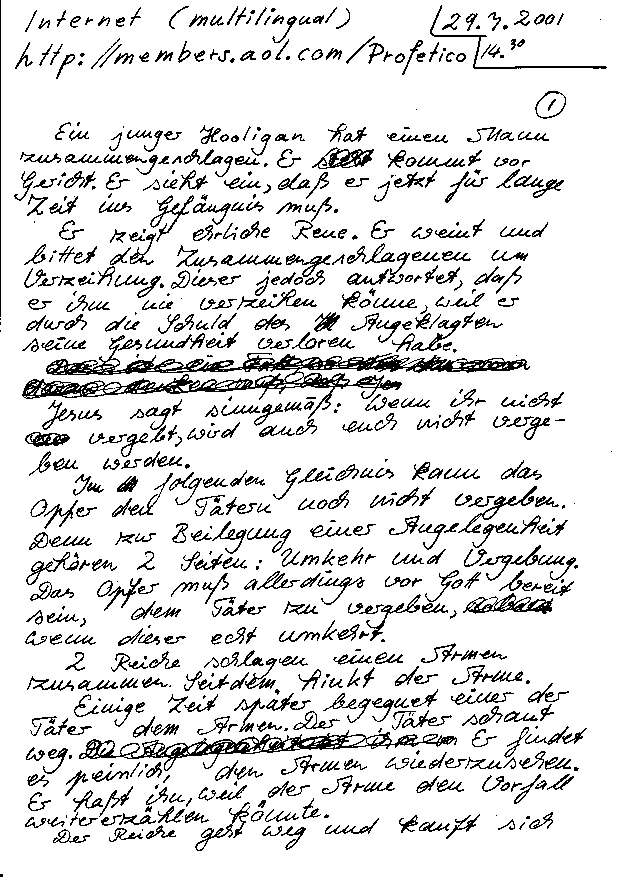 Internet (multilingual) 29.3.2001
http://members.aol.com/Profetico 14.30
1
Ein junger Hooligan hat einen Mann
zusammengeschlagen. Er kommt vor
Gericht. Er sieht ein, daß er jetzt für lange
Zeit ins Gefängnis muß.
Er zeigt ehrliche Reue. Er weint und
bittet den Zusammengeschlagenen um
Verzeihung. Dieser jedoch antwortet, daß
er ihm nie verzeihen könne, weil er
durch die Schuld des Angeklagten
seine Gesundheit verloren habe.
Jesus sagt sinngemäß: Wenn ihr nicht
vergebt, wird auch euch nicht verge-
ben werden.
Im folgenden Gleichnis kann das
Opfer den Tätern noch nicht vergeben.
Denn zur Beilegung einer Angelegenheit
gehören 2 Seiten: Umkehr und Vergebung.
Das Opfer muß allerdings vor Gott bereit
sein, dem Täter zu vergeben,
wenn dieser echt umkehrt.
2 Reiche schlagen einen Armen
zusammen. Seitdem hinkt der Arme.
Einige Zeit später begegnet einer der
Täter dem Armen. Der Täter schaut
weg. Er findet
es peinlich, den Armen wiederzusehen.
Er haßt ihn, weil der Arme den Vorfall
weitererzählen könnte.
Der Reiche geht weg und kauft sich